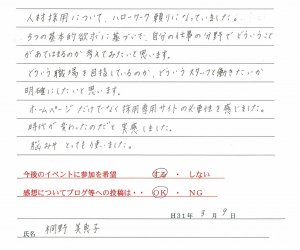 人材採用について、ハローワーク頼りになっていました。
5つの基本的欲求に基づいて、自分の仕事の分野でどういうこと
があてはまるのか考えてみたいと思います。
どういう職場を目指しているのか、どういうスタッフと働きたいか
明確にしたいと思います。
ホームページだけでなく採用専用サイトの必要性を感じました。
時代が変わったのだと実感しました。
脳みそとっても使いました。
今後のイベントに参加を希望 する ・ しない
感想についてブログ等への投稿は・・ OK ・ NG
H31年 3月 9日
氏名 桐野 美貴子